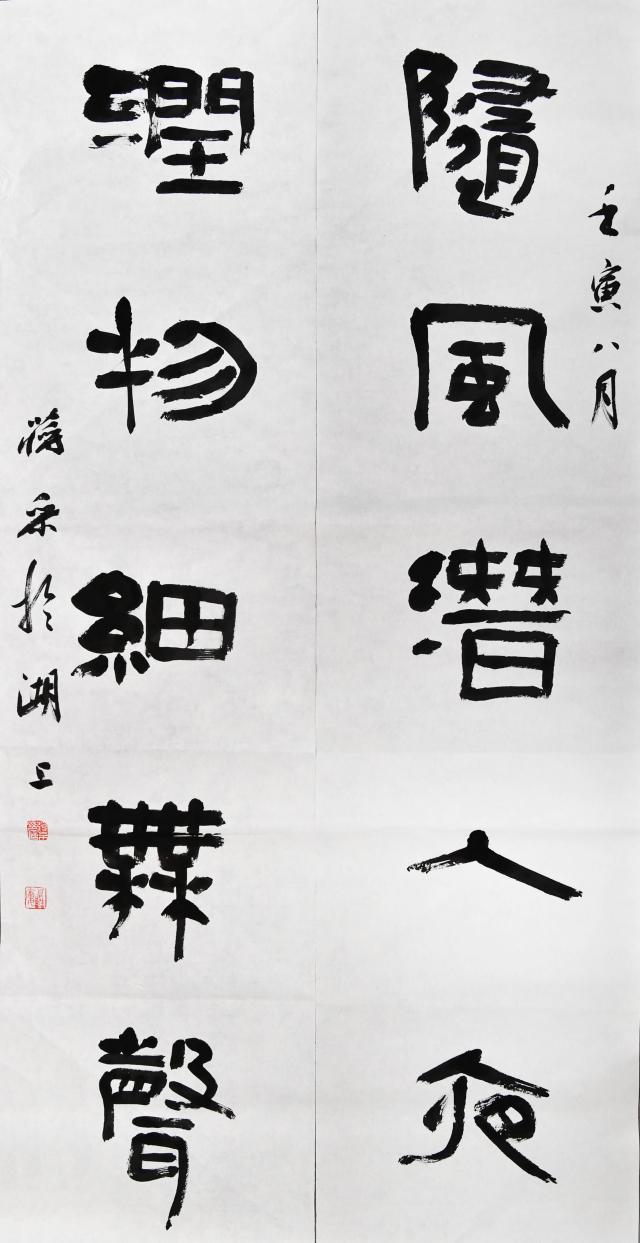 壬寅八月
隨風潛入夜
潤物細無聲
蔣采於湖上